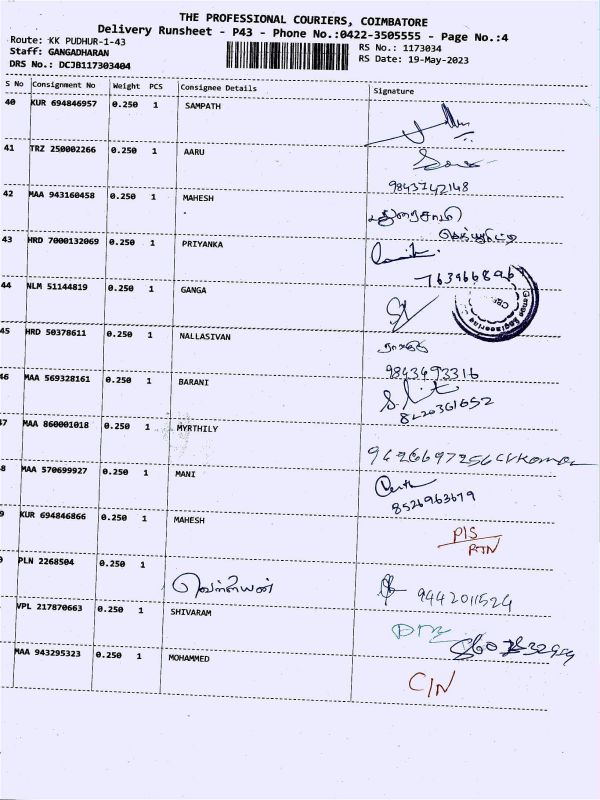 THE PROFESSIONAL COURIERS, COIMBATORE
Delivery Runsheet - P43 - Phone No.:0422-3505555 - Page No.:4
Route: KK PUDHUR-1-43
RS No.: 1173034
Staff: GANGADHARAN
RS Date: 19-May-2023
DRS No.: DCJB117303404
S No Consignment No Weight PCS Consignee Details Signature
40 KUR 694846957 0.250 1 SAMPATH
41 TRZ 250002266 0.250 1 AARU
9843742148
42 MAA 943160458 0.250 1 MAHESH
43 HRD 7000132069 0.250 1 PRIYANKA
763966896
44 NLM 51144819 0.250 1 GANGA
45 HRD 50378611 0.250 1 NALLASIVAN
9843493316
46 MAA 569328161 0.250 1 BARANI
8220361652
47 MAA 860001018 0.250 1 MYRTHILY
9426697256
8 MAA 570699927 0.250 1 MANI
8526963679
9 KUR 694846866 0.250 1 MAHESH
PIS
RTN
PLN 2268504 0.250 1
வெள்ளியன் 9442011524
VPL 217870663 0.250 1 SHIVARAM
MAA 943295323 0.250 1 MOHAMMED
C/N